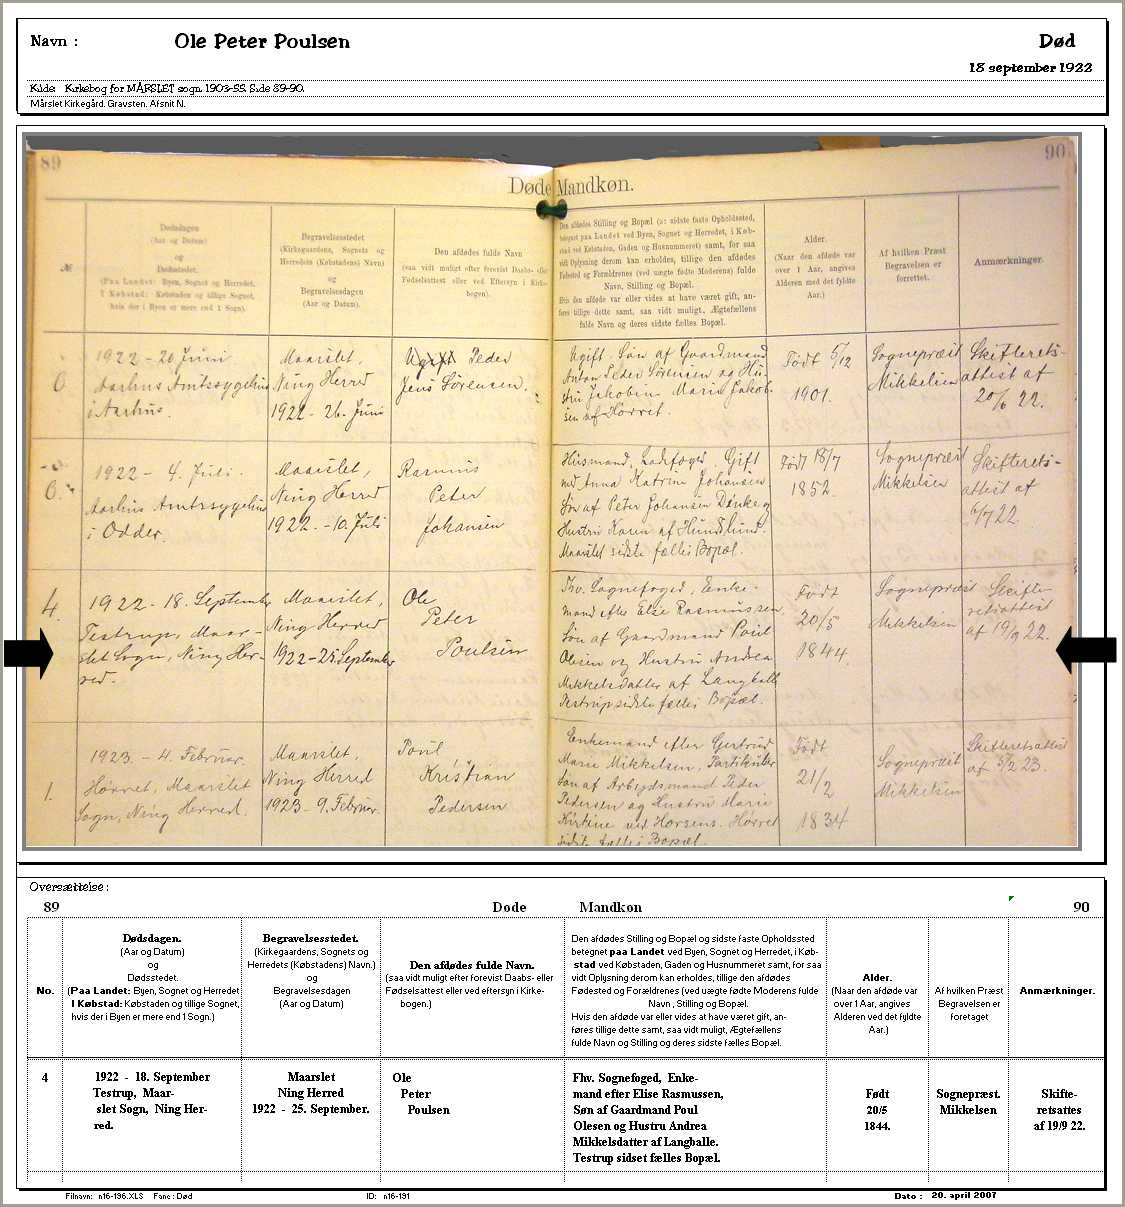 Navn :
Ole Peter Poulsen
Død
18 september 1922
Kilde: Kirkebog for MÅRSLET sogn. 1903-55. Side 89-90.
Mårslet Kirkegård. Gravsten. Afsnit N.
89
90
Døde Mandkøn.
№
Dødsdagen
(Aar og Datum)
og
Dødsstedet.
(Paa Landet: Byen, Sognet og Herredet.
I Købstad: Købstaden og tillige Sognet,
hvis der i Byen er mere end 1 Sogn).
Begravelsesstedet
(Kirkegaardens, Sognets og
Herredets (Købstadens) Navn)
og
Begravelsesdagen
(Aar og Datum).
Den afdødes fulde Navn
(saa vidt muligt efter forevist Daabs- eller
Fødselsattest eller ved Eftersyn i Kirke-
bogen).
Den afdødes Stilling og Bopæl (o: sidste faste Opholdssted,
betegnet paa Landet ved Byen, Sognet og Herredet, i Køb-
stad ved Købstaden, Gaden og Husnummeret) samt, for saa
vidt Oplysning derom kan erholdes, tillige den afdødes
Fødested og Forældrenes (ved uægte fødte Moderens) fulde
Navn, Stilling og Bopæl.
Hvis den afdøde var eller vides at have været gift, an-
føres tillige dette samt, saa vidt muligt, Ægtefællens
fulde Navn og deres sidste fælles Bopæl.
Alder.
(Naar den afdøde var
over 1 Aar, angives
Alderen med det fyldte
Aar.)
Af hvilken Præst
Begravelsen er
forrettet.
Anmærkninger.
6.
1922 - 20 Juni
Aarhus Amtssygehus
i Aarhus.
Maarslet,
Ning Herred
1922 - 26. Juni
Ugift Peder
Jens Sørensen.
Ugift. Søn af Gaardmand
Anton Peder Sørensen og Hu-
stru Jakobine Marie Jakob-
sen af Hørret.
Født 5/12
1901.
Sognepræst
Mikkelsen
Skifterets-
attest af
20/6 22.
6.
1922 - 4. Juli.
Aarhus Amtssygehus
i Odder.
Maarslet,
Ning Herred
1922. - 10. Juli
Rasmus
Peter
Johansen
Husmand, Ladefoged. Gift
med Anna Katrine Johansen
Søn af Peter Johansen Dønke og
Hustru Karen af Hundslund.
Maarslet sidste fælles Bopæl.
Født 18/7
1852.
Sognepræst
Mikkelsen
Skifterets-
attest af
6/7 22.
4.
1922 - 18. September
Testrup, Maar-
slet Sogn, Ning Her-
red.
Maarslet,
Ning Herred
1922 - 25. September
Ole
Peter
Poulsen
Fhv. Sognefoged, Enke-
mand efter Else Rasmussen,
Søn af Gaardmand Poul
Olesen og Hustru Andrea
Mikkelsdatter af Langballe
Testrup sidste fælles Bopæl.
Født
20/5
1844.
Sognepræst
Mikkelsen
Skifte-
retsattest
af 19/9 22.
1.
1923. - 4. Februar.
Hørret, Maarslet
Sogn, Ning Herred.
Maarslet,
Ning Herred
1923 - 9. Februar.
Poul
Kristian
Pedersen
Enkemand efter Gertrud
Marie Mikkelsen, Partikulier
Søn af Arbejdsmand Peder
Pedersen og Hustru Marie
Kirtine ved Horsens. Hørret
sidste fælles Bopæl.
Født
21/2
1834
Sognepræst
Mikkelsen
Skifteretsattest
af 5/2 23.
Oversættelse :
89
Døde
Mandkøn
90
No.
Dødsdagen.
(Aar og Datum)
og
Dødsstedet.
(Paa Landet: Byen, Sognet og Herredet
I Købstad: Købstaden og tillige Sognet,
hvis der i Byen er mere end 1 Sogn.)
Begravelsesstedet.
(Kirkegaardens, Sognets og
Herredets (Købstadens) Navn.)
og
Begravelsesdagen
(Aar og Datum)
Den afdødes fulde Navn.
(saa vidt muligt efter forevist Daabs- eller
Fødselsattest eller ved eftersyn i Kirke-
bogen.)
Den afdødes Stilling og Bopæl og sidste faste Opholdssted
betegnet paa Landet ved Byen, Sognet og Herredet, i Køb-
stad ved Købstaden, Gaden og Husnummeret samt, for saa
vidt Oplysning derom kan erholdes, tillige den afdødes
Fødested og Forældrenes (ved uægte fødte Moderens fulde
Navn , Stilling og Bopæl.
Hvis den afdøde var eller vides at have været gift, an-
føres tillige dette samt, saa vidt muligt, Ægtefællens
fulde Navn og Stilling og deres sidste fælles Bopæl.
Alder.
(Naar den afdøde var
over 1 Aar, angives
Alderen ved det fyldte
Aar.)
Af hvilken Præst
Begravelsen er
foretaget
Anmærkninger.
4
1922 - 18. September
Testrup, Maar-
slet Sogn, Ning Her-
red.
Maarslet
Ning Herred
1922 - 25. September.
Ole
Peter
Poulsen
Fhv. Sognefoged, Enke-
mand efter Elise Rasmussen,
Søn af Gaardmand Poul
Olesen og Hustru Andrea
Mikkelsdatter af Langballe.
Testrup sidset fælles Bopæl.
Født
20/5
1844.
Sognepræst.
Mikkelsen
Skifte-
retsattes
af 19/9 22.
Filnavn: n16-196.XLS Fane : Død
ID: n16-191
Dato : 20. april 2007